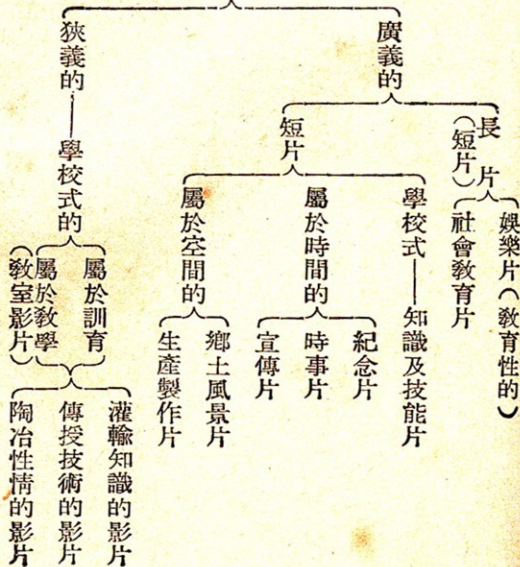 廣義的
長片
(短片)
娛樂片(教育性的)
社會教育片
短片
學校式——知識及技能片
屬於時間的
紀念片
時事片
宣傳片
屬於空間的
鄉土風景片
生產製作片
狹義的——學校式的
屬於訓育
屬於教學
(教室影片)
灌輸知識的影片
傳授技術的影片
陶冶性情的影片